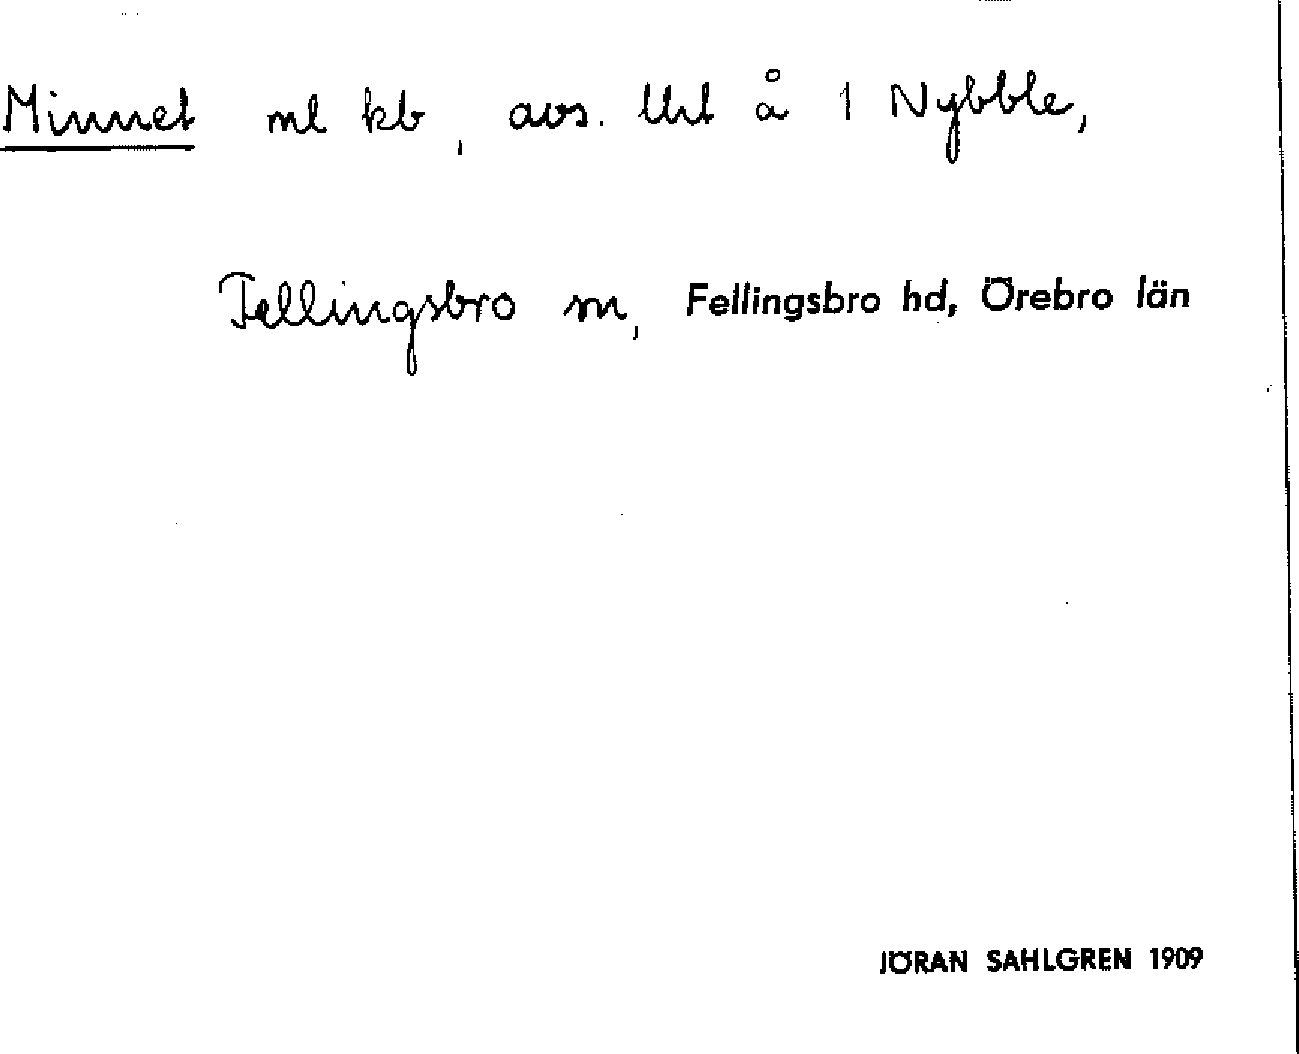 Minnet ml kb, avs. Uut å 1 Nybble,
Fellingsbro sn, Fellingsbro hd, Örebro län
JÖRAN SAHLGREN 1909